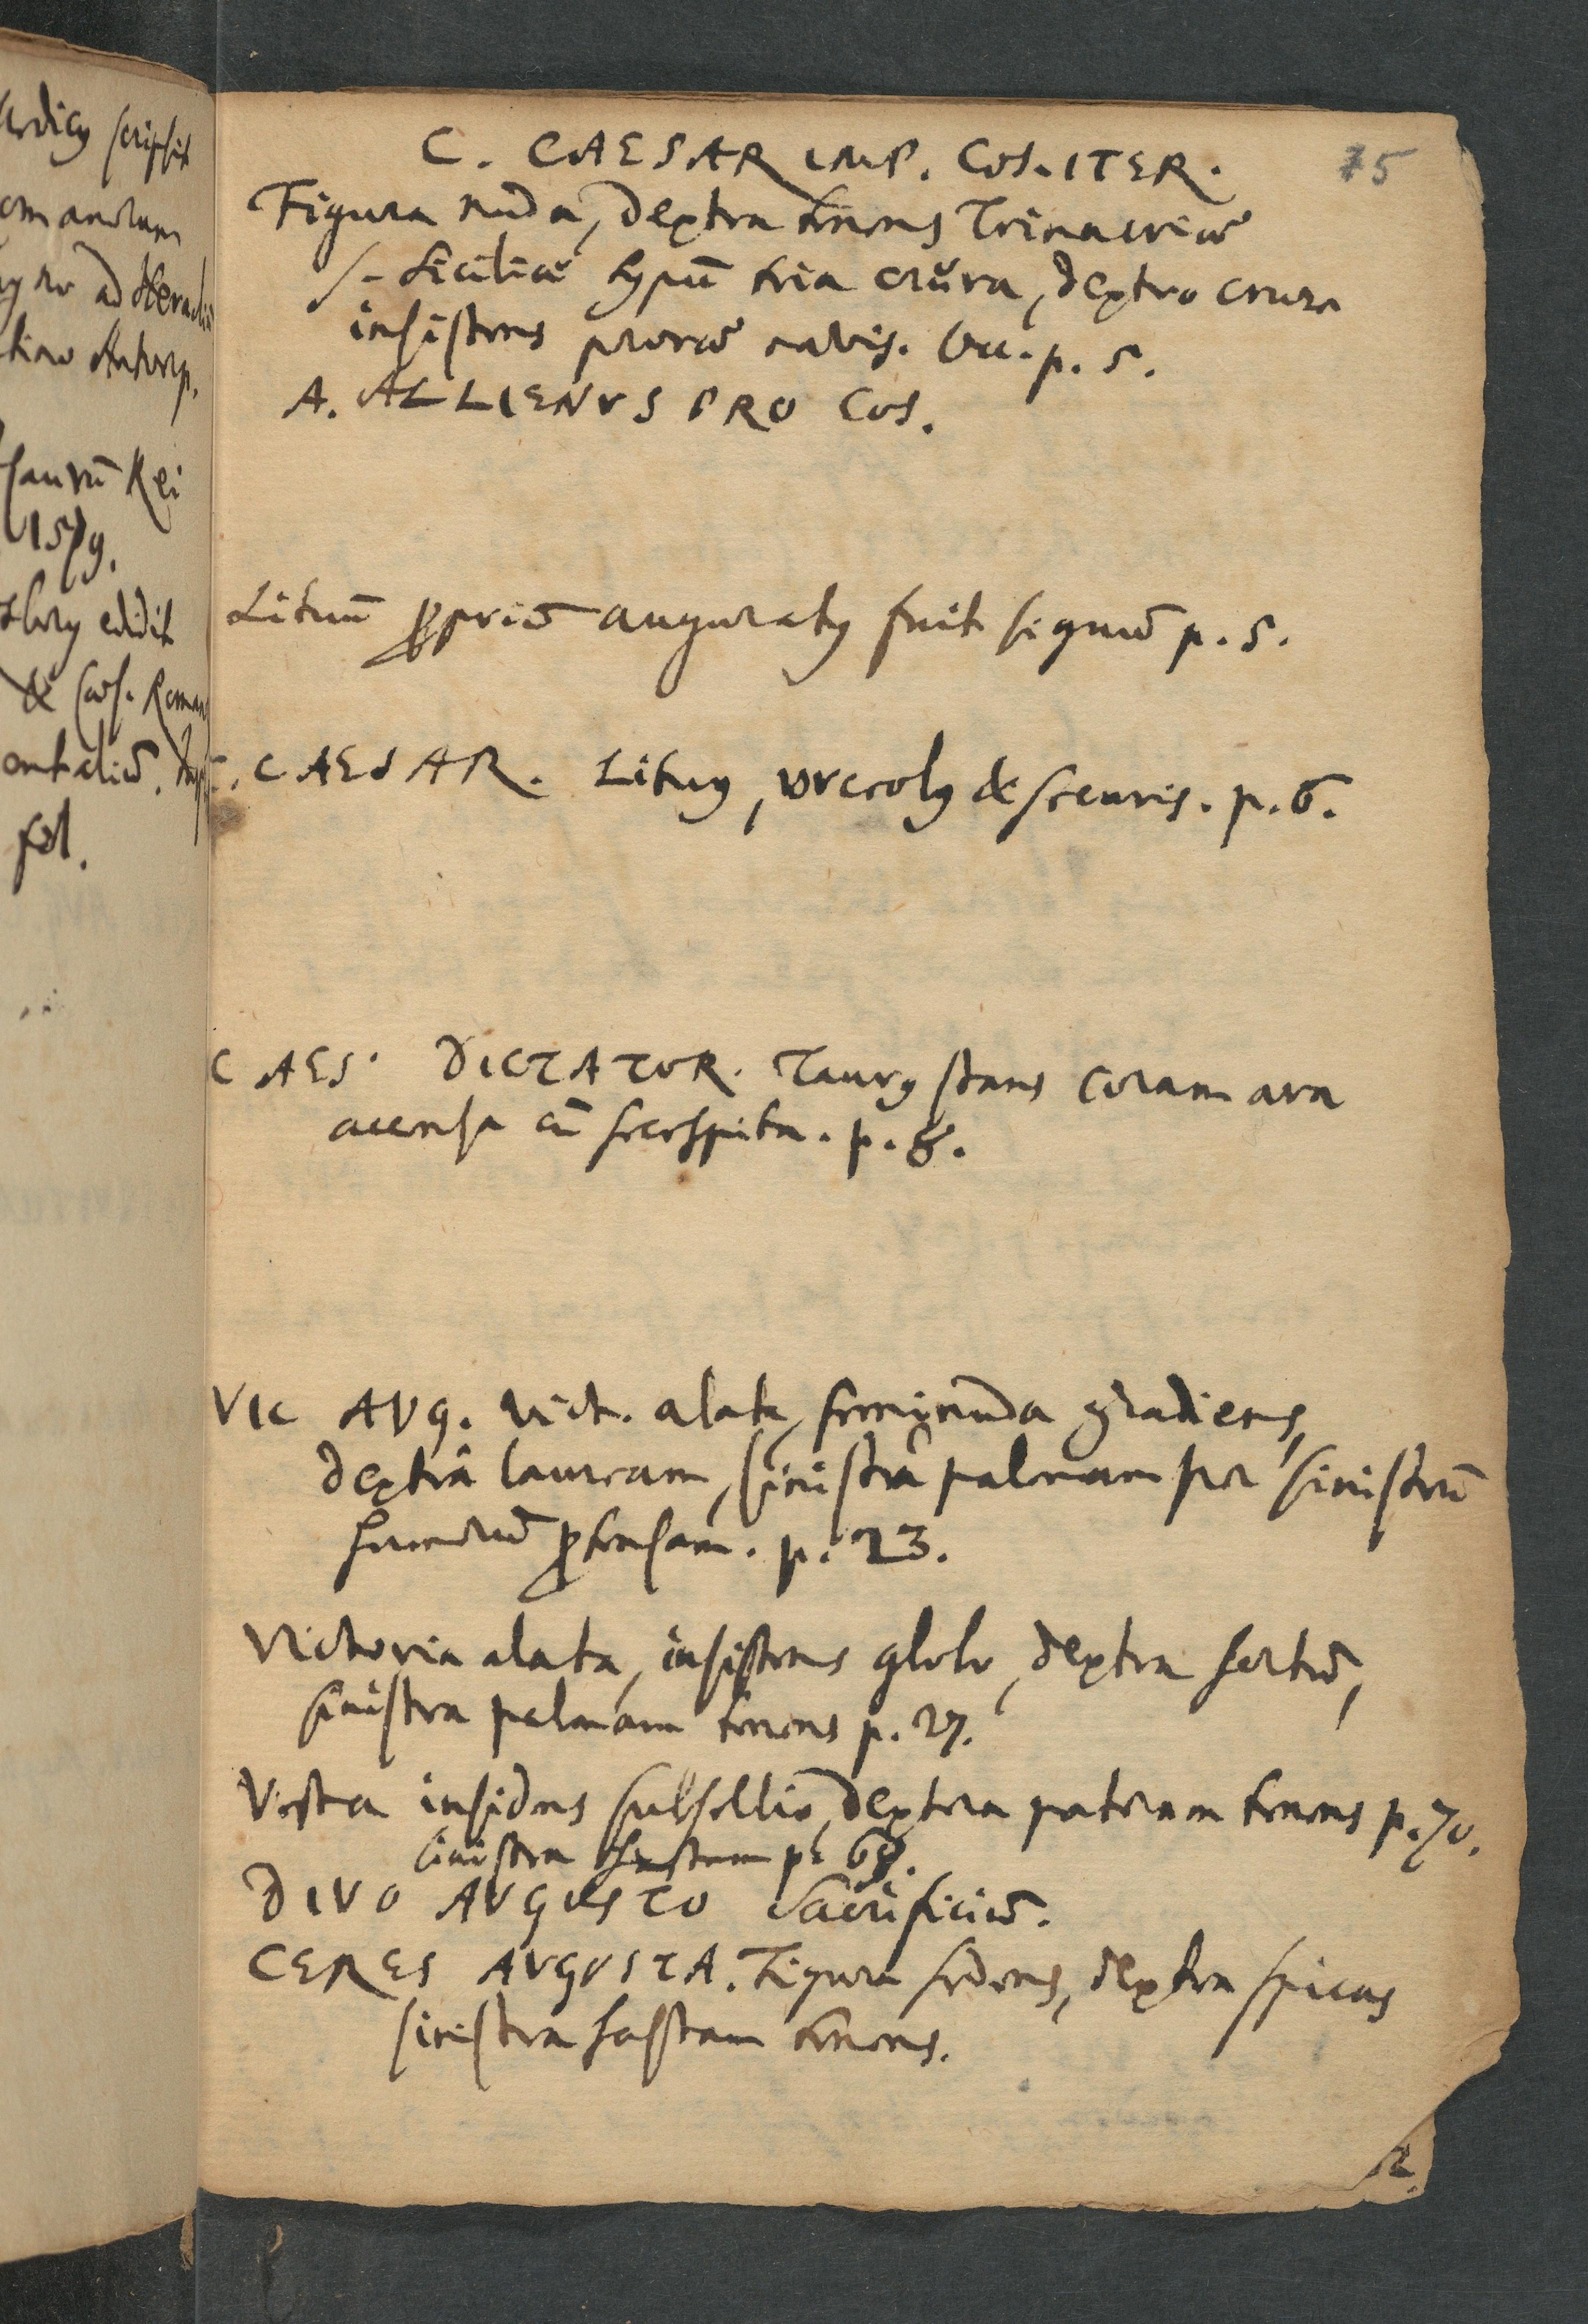 ardicꝰ scripsit
omanorum
ad Heraclii
Antverp.
saurū Rei
1579.
edidit
& Caes. Roman
entaliū.
fol.
75
C. CAESAR IMP. COS. ITER.
Figura nuda, dextra tenens Trinacriae
s. Siciliae typū tria crŭra, dextro crure
insistens prorae navis. Occ. p. 5.
A. ALLIENVS PRO COS.
Lituū ꝓpriū auguratꝰ fuit signū p. 5.
CAESAR. Lituꝰ, vrceolꝰ & securis. p. 6.
CAES. DICTATOR. Taurꝰ stans coram ara
accensa cū secespita. p. 8.
VIC AVG. Vict. alata, seminuda gradiens,
dextrâ lauream, sinistrâ palmam per sinistrū
humerū ꝓtensam. p. 23.
Victoria alata, insistens globo, dextra sertū,
sinistra palmam tenens p. 27.
Vesta insidens subsellio, dextera pateram tenens p. 70.
sinistra hastam p. 68.
DIVO AVGVSTO Sacrificiū.
CERES AVGVSTA. Figura sedens, dextra spicas
sinistra hastam tenens.